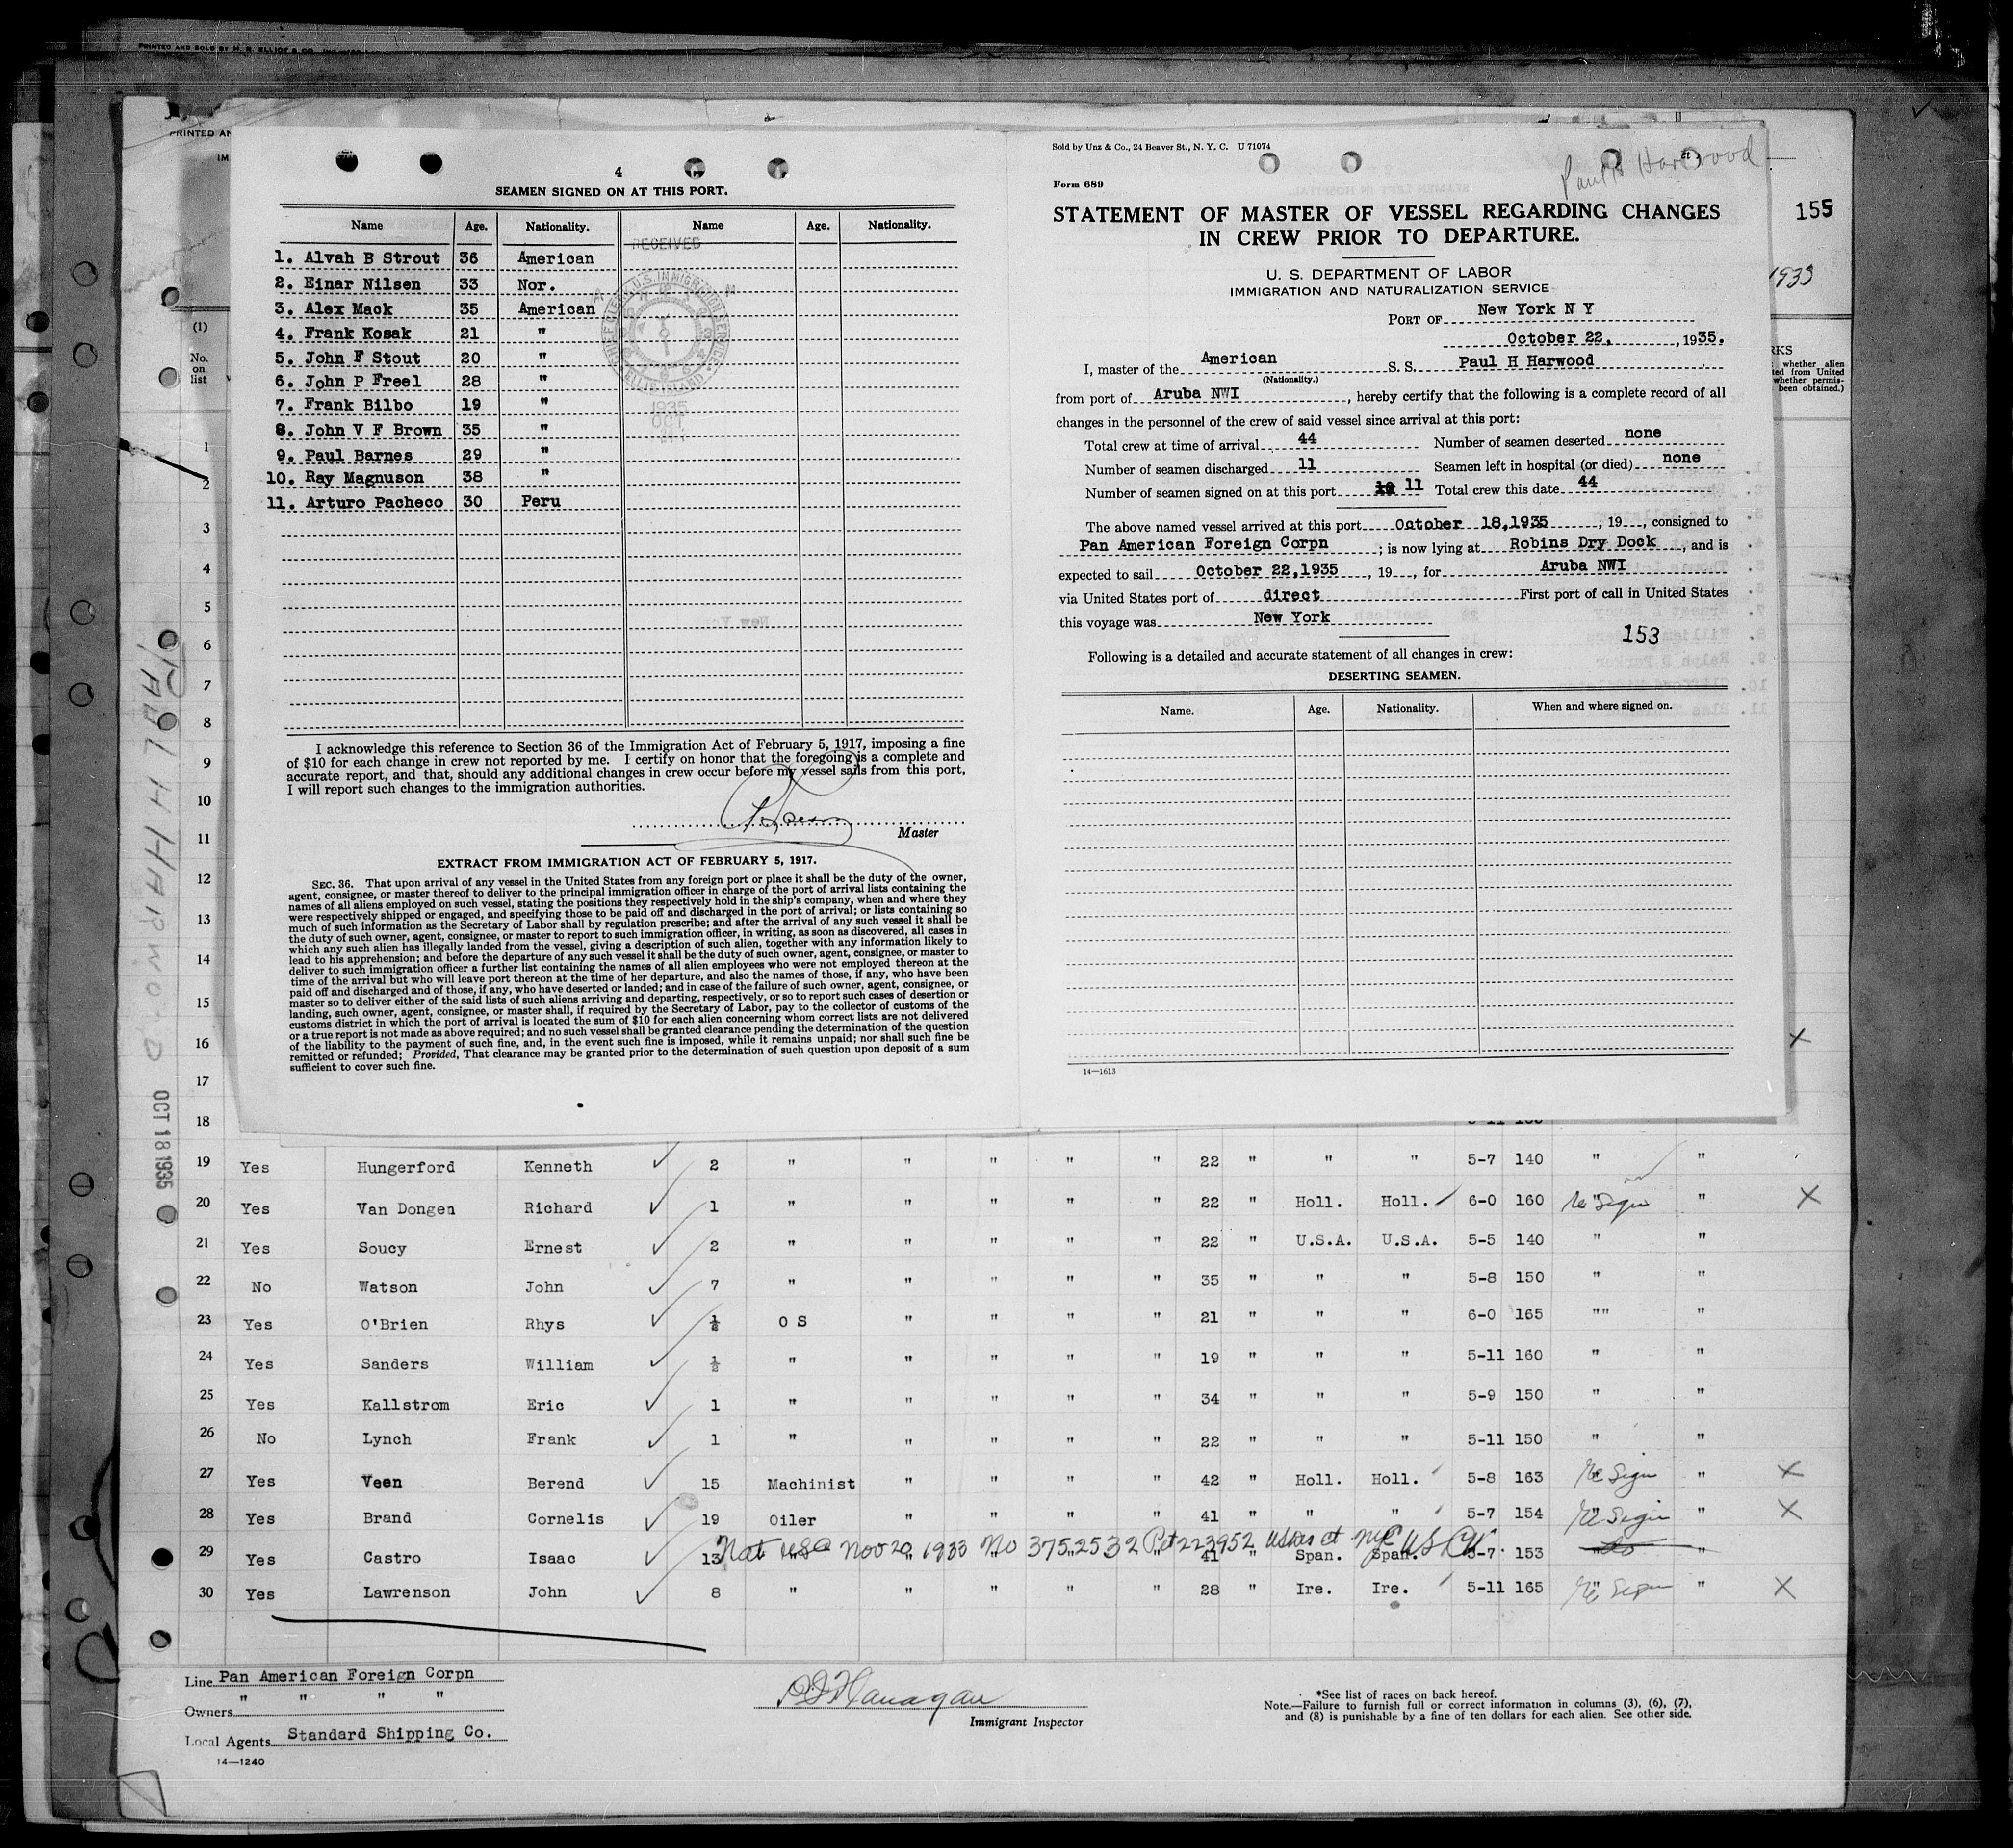 PRINTED AND SOLD BY M. R. ELLIOT & CO.
PRINTED AN
IM
4
SEAMEN SIGNED ON AT THIS PORT.
Name Age. Nationality. Name Age. Nationality.
RECEIVED
1. Alvah B Strout 36 American
2. Einar Nilsen 33 Nor.
3. Alex Mack 35 American
4. Frank Kosak 21 "
5. John F Stout 20 "
6. John P Freel 28 "
7. Frank Bilbo 19 "
8. John V F Brown 35 "
9. Paul Barnes 29 "
10. Ray Magnuson 38 "
11. Arturo Pacheco 30 Peru
1935
OCT
I acknowledge this reference to Section 36 of the Immigration Act of February 5, 1917, imposing a fine
of $10 for each change in crew not reported by me. I certify on honor that the foregoing is a complete and
accurate report, and that, should any additional changes in crew occur before my vessel sails from this port,
I will report such changes to the immigration authorities.
Master
EXTRACT FROM IMMIGRATION ACT OF FEBRUARY 5, 1917.
SEC. 36. That upon arrival of any vessel in the United States from any foreign port or place it shall be the duty of the owner,
agent, consignee, or master thereof to deliver to the principal immigration officer in charge of the port of arrival lists containing the
names of all aliens employed on such vessel, stating the positions they respectively hold in the ship's company, when and where they
were respectively shipped or engaged, and specifying those to be paid off and discharged in the port of arrival; or lists containing so
much of such information as the Secretary of Labor shall by regulation prescribe; and after the arrival of any such vessel it shall be
the duty of such owner, agent, consignee, or master to report to such immigration officer, in writing, as soon as discovered, all cases in
which any such alien has illegally landed from the vessel, giving a description of such alien, together with any information likely to
lead to his apprehension; and before the departure of any such vessel it shall be the duty of such owner, agent, consignee, or master to
deliver to such immigration officer a further list containing the names of all alien employees who were not employed thereon at the
time of the arrival but who will leave port thereon at the time of her departure, and also the names of those, if any, who have been
paid off and discharged and of those, if any, who have deserted or landed; and in case of the failure of such owner, agent, consignee, or
master so to deliver either of the said lists of such aliens arriving and departing, respectively, or so to report such cases of desertion or
landing, such owner, agent, consignee, or master shall, if required by the Secretary of Labor, pay to the collector of customs of the
customs district in which the port of arrival is located the sum of $10 for each alien concerning whom correct lists are not delivered
or a true report is not made as above required; and no such vessel shall be granted clearance pending the determination of the question
of the liability to the payment of such fine, and, in the event such fine is imposed, while it remains unpaid; nor shall such fine be
remitted or refunded; Provided, That clearance may be granted prior to the determination of such question upon deposit of a sum
sufficient to cover such fine.
Sold by Unz & Co., 24 Beaver St., N. Y. C. U 71074
Paul H Harwood
Form 689
STATEMENT OF MASTER OF VESSEL REGARDING CHANGES
IN CREW PRIOR TO DEPARTURE.
155
U. S. DEPARTMENT OF LABOR
IMMIGRATION AND NATURALIZATION SERVICE
1933
PORT OF New York N Y
October 22, , 1935.
I, master of the American S. S. Paul H Harwood
(Nationality.)
from port of Aruba NWI , hereby certify that the following is a complete record of all
changes in the personnel of the crew of said vessel since arrival at this port:
Total crew at time of arrival 44 Number of seamen deserted none
Number of seamen discharged 11 Seamen left in hospital (or died) none
Number of seamen signed on at this port 10 11 Total crew this date 44
The above named vessel arrived at this port October 18,1935 , 19 , consigned to
Pan American Foreign Corpn ; is now lying at Robins Dry Dock , and is
expected to sail October 22,1935 , 19 , for Aruba NWI
via United States port of direct First port of call in United States
this voyage was New York
153
Following is a detailed and accurate statement of all changes in crew:
DESERTING SEAMEN.
Name. Age. Nationality. When and where signed on.
14—1613
RKS
whether alien
ted from United
whether permis-
been obtained.)
(1)
No.
on
list
1
2
3
4
5
6
7
8
9
10
11
12
13
14
15
16
17
18
PAUL H HARWOOD
OCT 18 1935
19 Yes Hungerford Kenneth 2 " " " " " 22 " " " 5-7 140 " "
20 Yes Van Dongen Richard 1 " " " " " 22 " Holl. Holl. 6-0 160 " "
21 Yes Soucy Ernest 2 " " " " " 22 " U.S.A. U.S.A. 5-5 140 " "
22 No Watson John 7 " " " " " 35 " " " 5-8 150 " "
23 Yes O'Brien Rhys ½ O S " " " " 21 " " " 6-0 165 "" "
24 Yes Sanders William ½ " " " " " 19 " " " 5-11 160 " "
25 Yes Kallstrom Eric 1 " " " " " 34 " " " 5-9 150 " "
26 No Lynch Frank 1 " " " " " 22 " " " 5-11 150 " "
27 Yes Veen Berend 15 Machinist " " " " 42 " Holl. Holl. 5-8 163 " "
28 Yes Brand Cornelis 19 Oiler " " " " 41 " " " 5-7 154 " "
Nat USC Nov 20, 1933 No 3752532 Pet 223952
29 Yes Castro Isaac 13 " " " " " 41 " Span. Span. 5-7 153 " "
30 Yes Lawrenson John 8 " " " " " 28 " Ire. Ire. 5-11 165 " "
Line Pan American Foreign Corpn
Owners " " " "
Local Agents Standard Shipping Co.
14—1240
Immigrant Inspector
*See list of races on back hereof.
Note.—Failure to furnish full or correct information in columns (3), (6), (7),
and (8) is punishable by a fine of ten dollars for each alien. See other side.